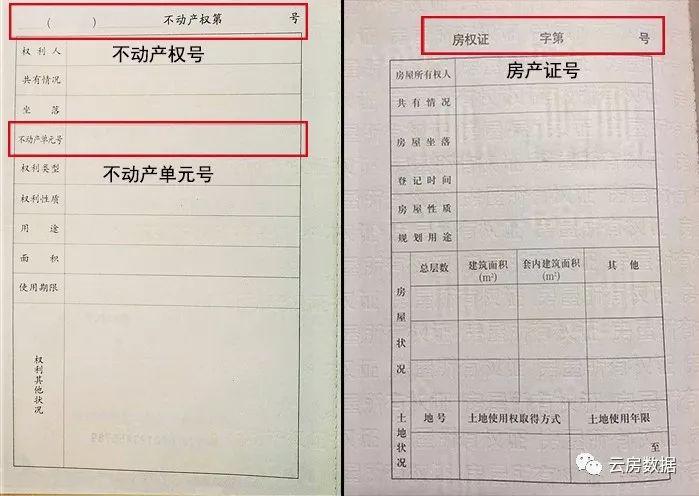 ( ) 不动产权第 号
权利人
不动产权号
共有情况
坐落
不动产单元号
权利类型
不动产单元号
权利性质
用途
面积
使用期限
权利其他状况
房权证 字第 号
房屋所有权人
房产证号
共有情况
房屋坐落
登记时间
房屋性质
规划用途
房屋状况
总层数 建筑面积(m²) 套内建筑面积(m²) 其他
土地状况
地号 土地使用权取得方式 土地使用年限
至
云房数据